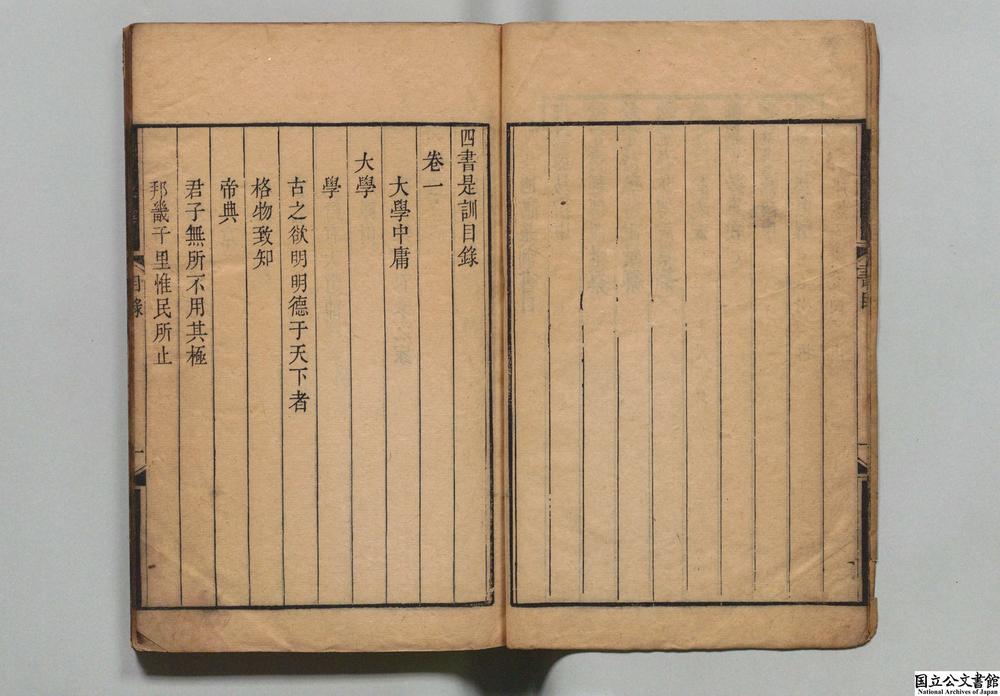 四書是訓目錄
卷一
大學中庸
大學
學
古之欲明明德于天下者
格物致知
帝典
君子無所不用其極
邦畿千里惟民所止
目錄
一
国立公文書館
National Archives of Japan